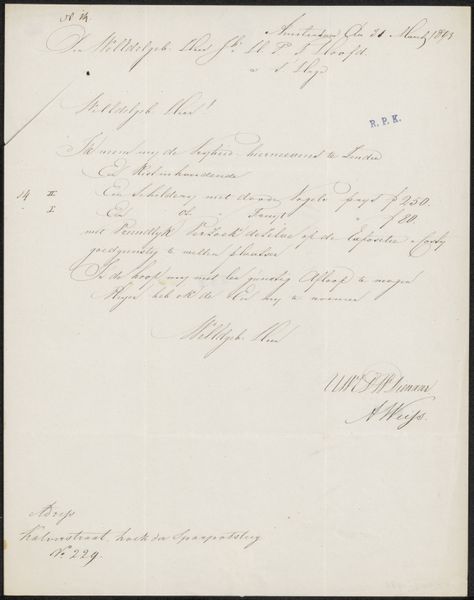 No 14.
Amsterdam den 21 Maart 1843
De WelEdelgeb. Heer Jhr. P. Hooft
s' Hage
WelEdelgeb. Heer!
R.P.K.
Ik neem mij de vrijheid hiernevens te zenden
Een Kist inhoudende
14 II Een Schilderij met doode Vogels prijs ƒ 250.
I Een do. Fruijt " ƒ 80.
met vriendlijk verzoek dezelve op de Expositie
goedgunstig te willen plaatsen
In de hoop mij met een gunstig Afloop te mogen
heb ik de Eer mij te noemen
WelEdelgeb. Heer
UWEd DWDienaar
A Weiss.
Adres
Kalverstraat hoek der Spaarpotsteeg
No 229.